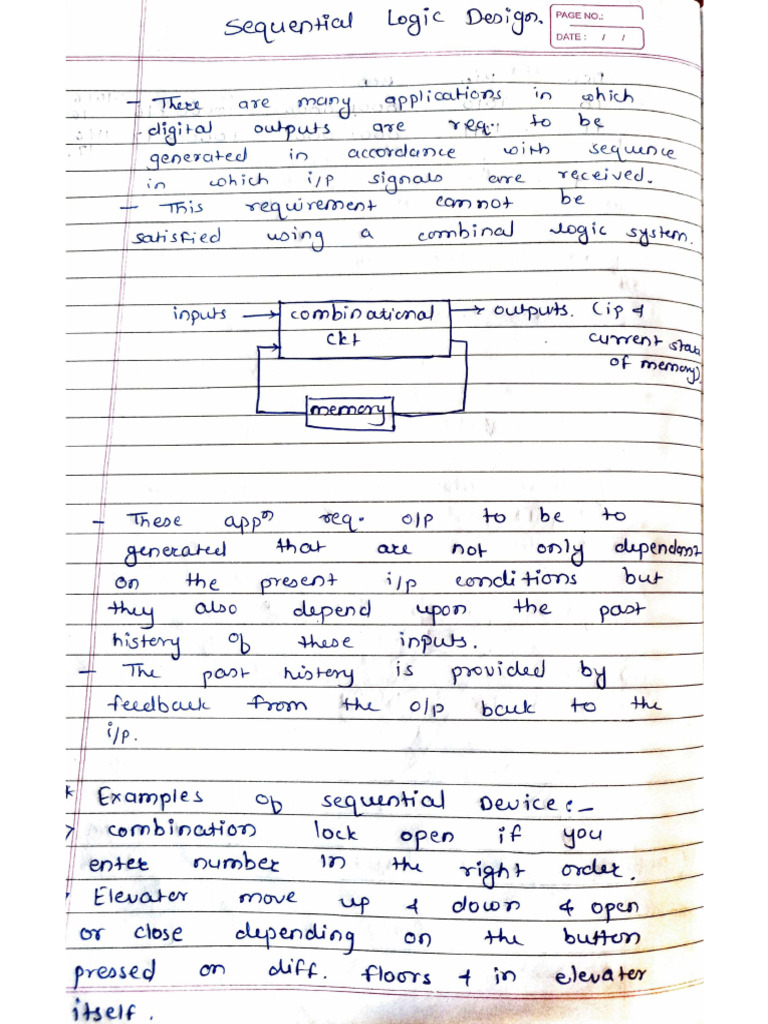 Sequential Logic Design.
PAGE NO.:
DATE : / /
- There are many applications in which
- digital outputs are req. to be
generated in accordance with sequence
in which i/p signals are received.
- This requirement cannot be
satisfied using a combinal logic system.
inputs → combinational → outputs. (ip &
ckt current state
of memory)
memory
- These appⁿ req. o/p to be to
generated that are not only dependant
on the present i/p conditions but
they also depend upon the past
history of these inputs.
- The past history is provided by
feedback from the o/p back to the
i/p.
* Examples of sequential Device:-
> combination lock open if you
enter number in the right order.
Elevater move up & down & open
or close depending on the button
pressed on diff. floors & in elevater
itself.